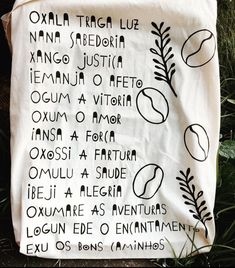 OXALA TRAGA LUZ
NANA SABEDORIA
XANGO JUSTIÇA
IEMANJA O AFETO
OGUM A VITORIA
OXUM O AMOR
IANSA A FORÇA
OXOSSI A FARTURA
OMULU A SAUDE
IBEJI A ALEGRIA
OXUMARE AS AVENTURAS
LOGUN EDE O ENCANTAMENTO
EXU OS BONS CAMINHOS